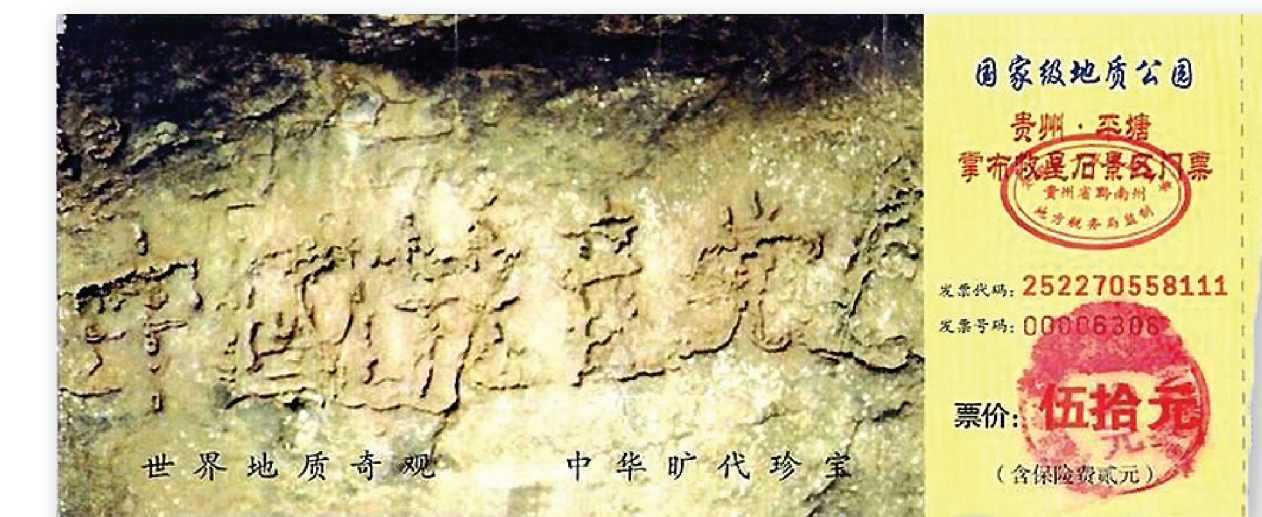 中國共产党亡
世界地质奇观 中华旷代珍宝
国家级地质公园
贵州·平塘
掌布救星石景区门票
贵州省黔南州
地方税务局监制
发票代码:252270558111
发票号码:
票价:伍拾元
(含保险费贰元)